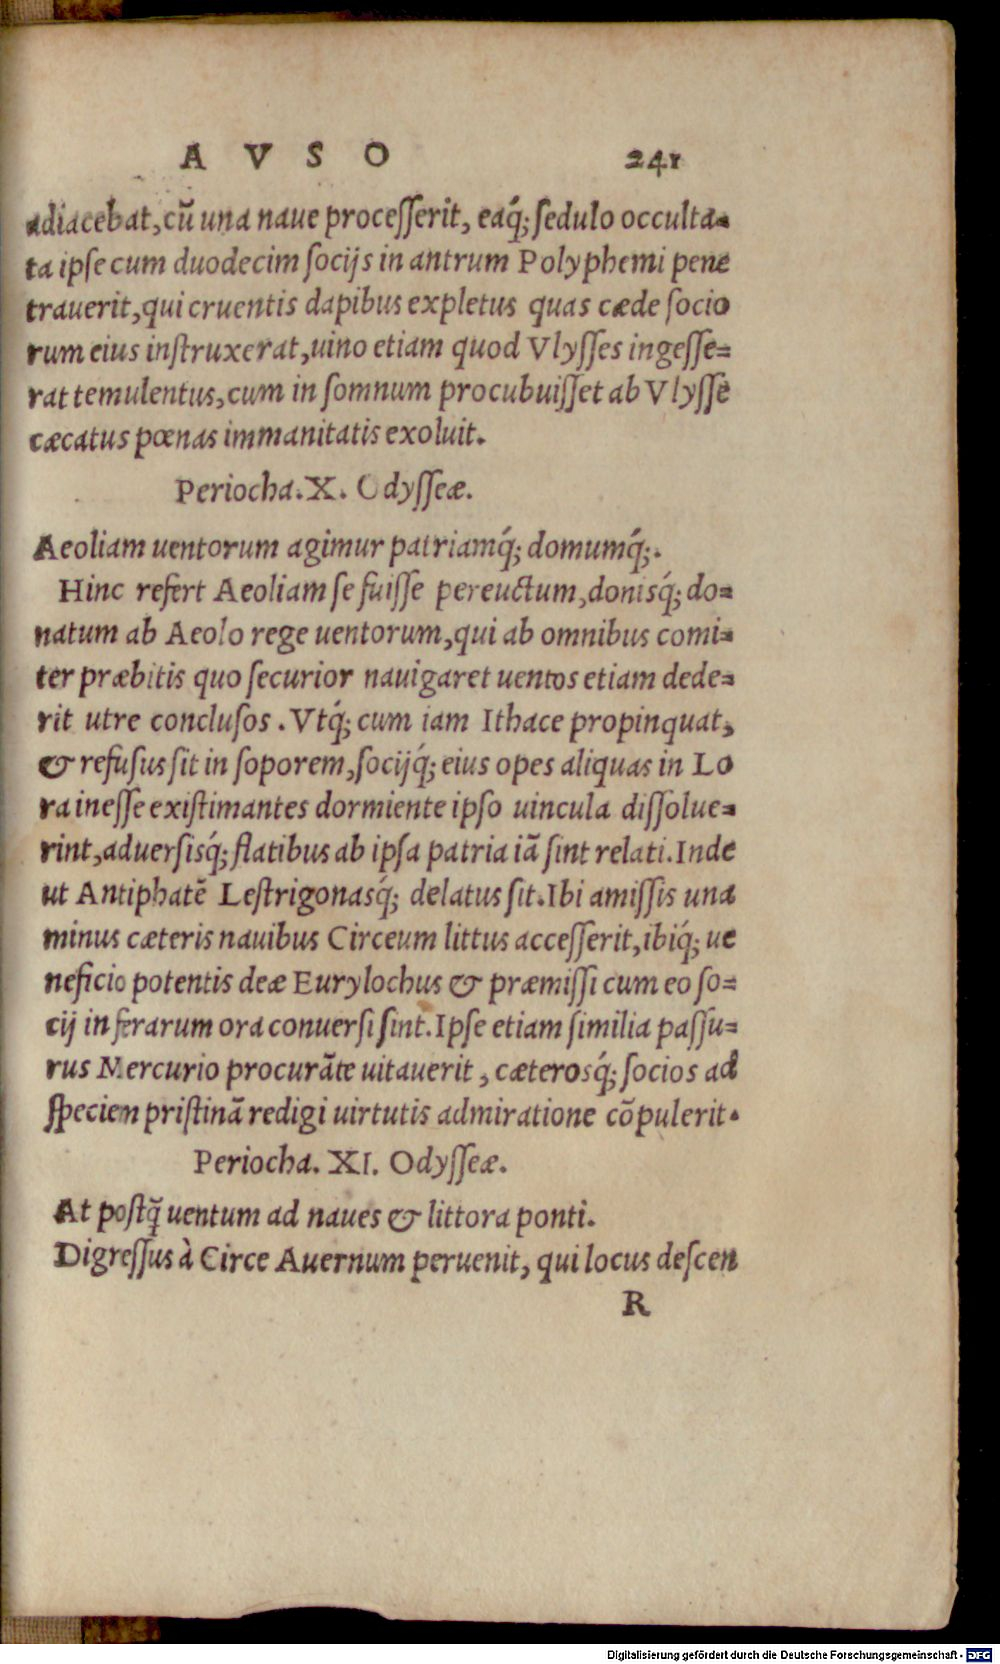 A V S O 241
adiacebat, cũ una naue processerit, eaq́; sedulo occulta=
ta ipse cum duodecim socijs in antrum Polyphemi pene
trauerit, qui cruentis dapibus expletus quas cæde socio
rum eius instruxerat, uino etiam quod Vlysses ingesse=
rat temulentus, cum in somnum procubuisset ab Vlysse
cæcatus pœnas immanitatis exoluit.
Periocha. X. Odysseæ.
Aeoliam uentorum agimur patriamq́; domumq́;.
Hinc refert Aeoliam se fuisse pereuctum, donisq́; do=
natum ab Aeolo rege uentorum, qui ab omnibus comi=
ter præbitis quo securior nauigaret uentos etiam dede=
rit utre conclusos. Vtq́; cum iam Ithace propinquat,
& refusus sit in soporem, socijq́; eius opes aliquas in Lo
ra inesse existimantes dormiente ipso uincula dissolue=
rint, aduersisq́; flatibus ab ipsa patria iã sint relati. Inde
ut Antiphatẽ Lestrigonasq́; delatus sit. Ibi amissis una
minus cæteris nauibus Circeum littus accesserit, ibiq́; ue
neficio potentis deæ Eurylochus & præmissi cum eo so=
cij in ferarum ora conuersi sint. Ipse etiam similia passu=
rus Mercurio procurãte uitauerit, cæterosq́; socios ad
speciem pristinã redigi uirtutis admiratione cõpulerit.
Periocha. XI. Odysseæ.
At postq̃ uentum ad naues & littora ponti.
Digressus à Circe Auernum peruenit, qui locus descen
R
Digitalisierung gefördert durch die Deutsche Forschungsgemeinschaft - DFG